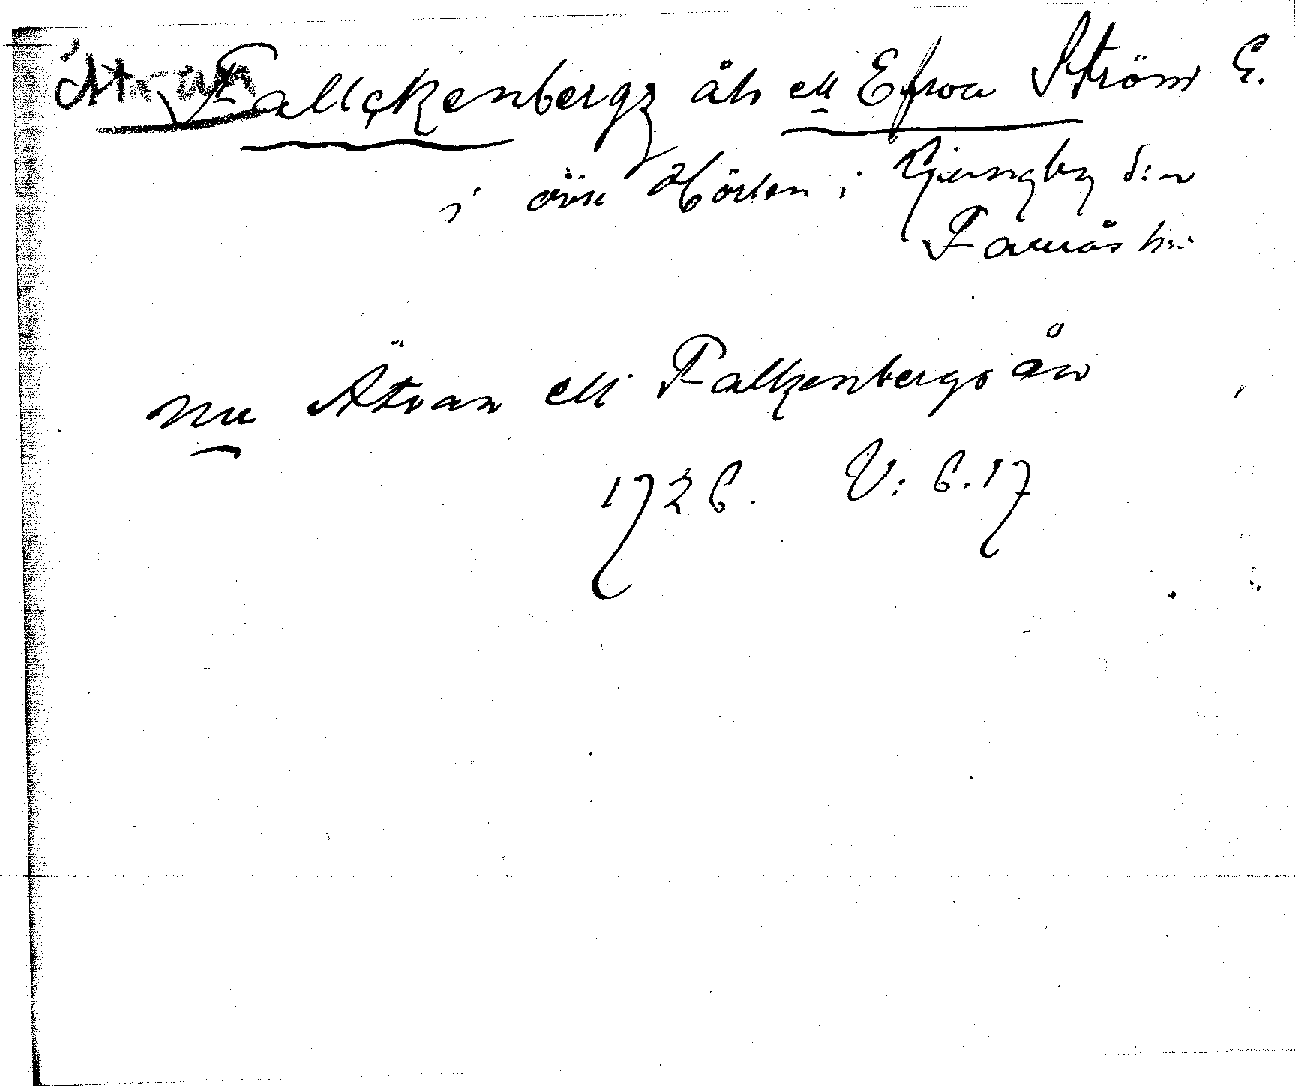 Ätran
Fallckenbergz åh ell Efwa Ström E.
i övre Hörlen i Gjungby s:n
Faurås h:d
nu Ätran ell Falkenbergsån
1726. V: 6.17